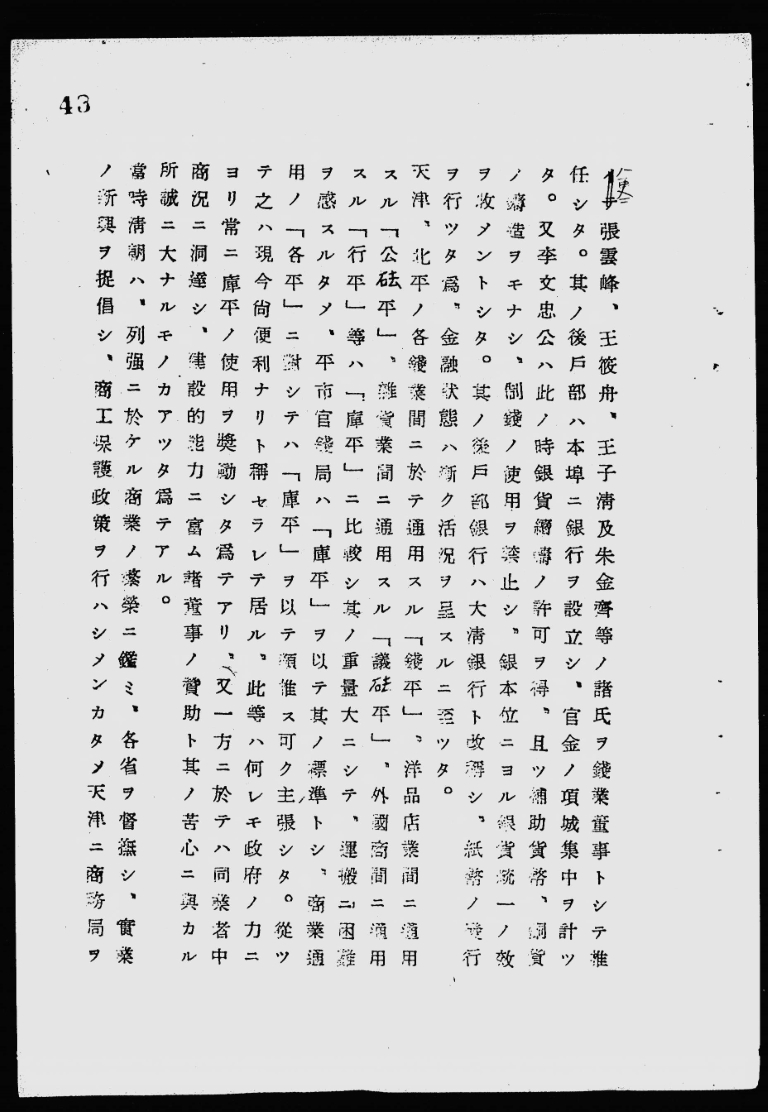 43
テ張雲峰、王筱舟、王子淸及朱金齊等ノ諸氏ヲ錢業董事トシテ推
任シタ。其ノ後戶部ハ本埠ニ銀行ヲ設立シ、官金ノ項城集中ヲ計ツ
タ。又李文忠公ハ此ノ時銀貨鑄ノ許可ヲ得、且ツ補助貨幣、銅貨
ノ鑄造ヲモナシ、制錢ノ使用ヲ禁止シ、銀本位ニヨル銀貨統一ノ效
ヲ收メントシタ。其ノ後戶部銀行ハ大淸銀行ト改稱シ、紙幣ノ發行
ヲ行ツタ爲、金融狀態ハ漸ク活況ヲ呈スルニ至ツタ。
天津、北平ノ各錢業間ニ於テ通用スル「錢平」、洋品店業間ニ通用
スル「公砝平」、雜貨業間ニ通用スル「議砝平」、外國商間ニ通用
スル「行平」等ハ「庫平」ニ比較シ其ノ重量大ニシテ、運搬ニ困難
ヲ感スルタメ、平市官錢局ハ「庫平」ヲ以テ其ノ標準トシ、商業通
用ノ「各平」ニ對シテハ「庫平」ヲ以テ類推ス可ク主張シタ。從ツ
テ之ハ現今尙便利ナリト稱セラレテ居ル。此等ハ何レモ政府ノ力ニ
ヨリ常ニ庫平ノ使用ヲ奬勵シタ爲テアリ、又一方ニ於テハ同業者中
商況ニ洞達シ、建設的能力ニ富ム諸董事ノ贊助ト其ノ苦心ニ與カル
所誠ニ大ナルモノカアツタ爲テアル。
當時淸朝ハ、列强ニ於ケル商業ノ繁榮ニ鑑ミ、各省ヲ督撫シ、實業
ノ新興ヲ提倡シ、商工保護政策ヲ行ハシメンカタメ天津ニ商務局ヲ